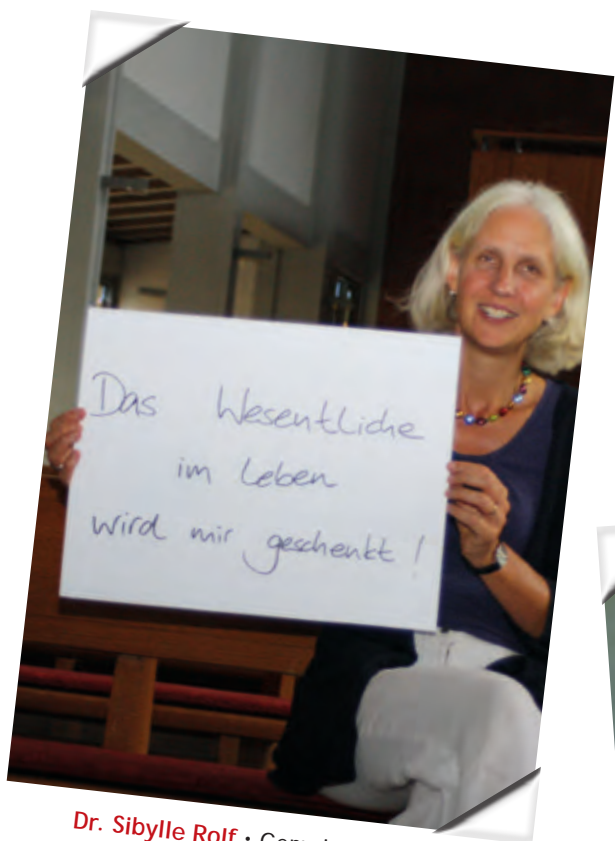 Das Wesentliche
im Leben
wird mir geschenkt!
Dr. Sibylle Rolf •